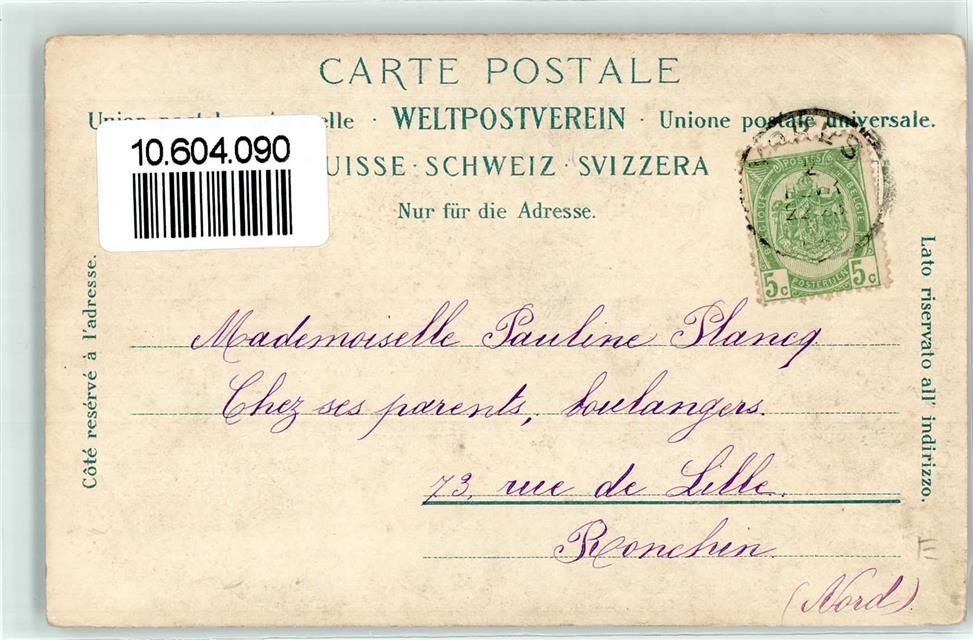 CARTE POSTALE
Union postale universelle · WELTPOSTVEREIN · Unione postale universale.
SUISSE · SCHWEIZ · SVIZZERA
Nur für die Adresse.
10.604.090
Côté resérvé à l'adresse.
Lato riservato all' indirizzo.
POSTES
BELGIQUE BELGIE
5c POSTERIJEN 5c
Mademoiselle Pauline Plancq
Chez ses parents, boulangers.
73, rue de Lille.
Ronchin
(Nord).
E